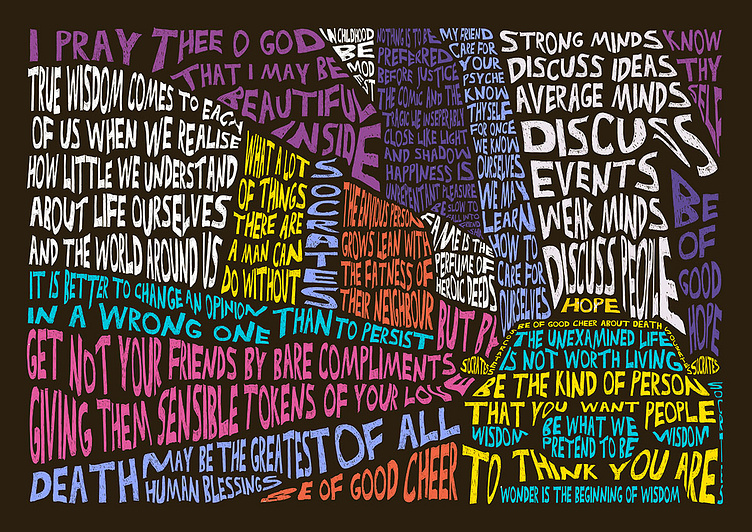 I PRAY THEE O GOD
THAT I MAY BE
BEAUTIFUL
INSIDE
IN CHILDHOOD
BE
MOD
EST
NOTHING IS TO BE
PREFERRED
BEFORE JUSTICE
THE COMIC AND THE
TRAGIC LIE INSEPERABLY
CLOSE LIKE LIGHT
AND SHADOW
HAPPINESS IS
UNREPENTANT PLEASURE
BE SLOW TO
FALL INTO
MY FRIEND
CARE FOR
YOUR
PSYCHE
KNOW
THYSELF
FOR ONCE
WE KNOW
OURSELVES
WE MAY
LEARN
HOW TO
CARE FOR
OURSELVES
STRONG MINDS
DISCUSS IDEAS
AVERAGE MINDS
DISCUSS
EVENTS
WEAK MINDS
DISCUSS PEOPLE
KNOW
THY
SELF
BE
OF
GOOD
HOPE
TRUE WISDOM COMES TO EACH
OF US WHEN WE REALISE
HOW LITTLE WE UNDERSTAND
ABOUT LIFE OURSELVES
AND THE WORLD AROUND US
WHAT A LOT
OF THINGS
THERE ARE
A MAN CAN
DO WITHOUT
SOCRATES
THE ENVIOUS PERSON
GROWS LEAN WITH
THE FATNESS OF
THEIR NEIGHBOUR
FAME IS THE
PERFUME OF
HEROIC DEEDS
IT IS BETTER TO CHANGE AN OPINION
IN A WRONG ONE THAN TO PERSIST
GET NOT YOUR FRIENDS BY BARE COMPLIMENTS
BUT BY
GIVING THEM SENSIBLE TOKENS OF YOUR LOVE
DEATH MAY BE THE GREATEST OF ALL
HUMAN BLESSINGS
BE OF GOOD CHEER
HOPE
BE OF GOOD CHEER ABOUT DEATH
THE UNEXAMINED LIFE
IS NOT WORTH LIVING
SOCRATES
SOCRATES
BE THE KIND OF PERSON
THAT YOU WANT PEOPLE
WISDOM
BE WHAT WE
PRETEND TO BE
WISDOM
TO THINK YOU ARE
WONDER IS THE BEGINNING OF WISDOM